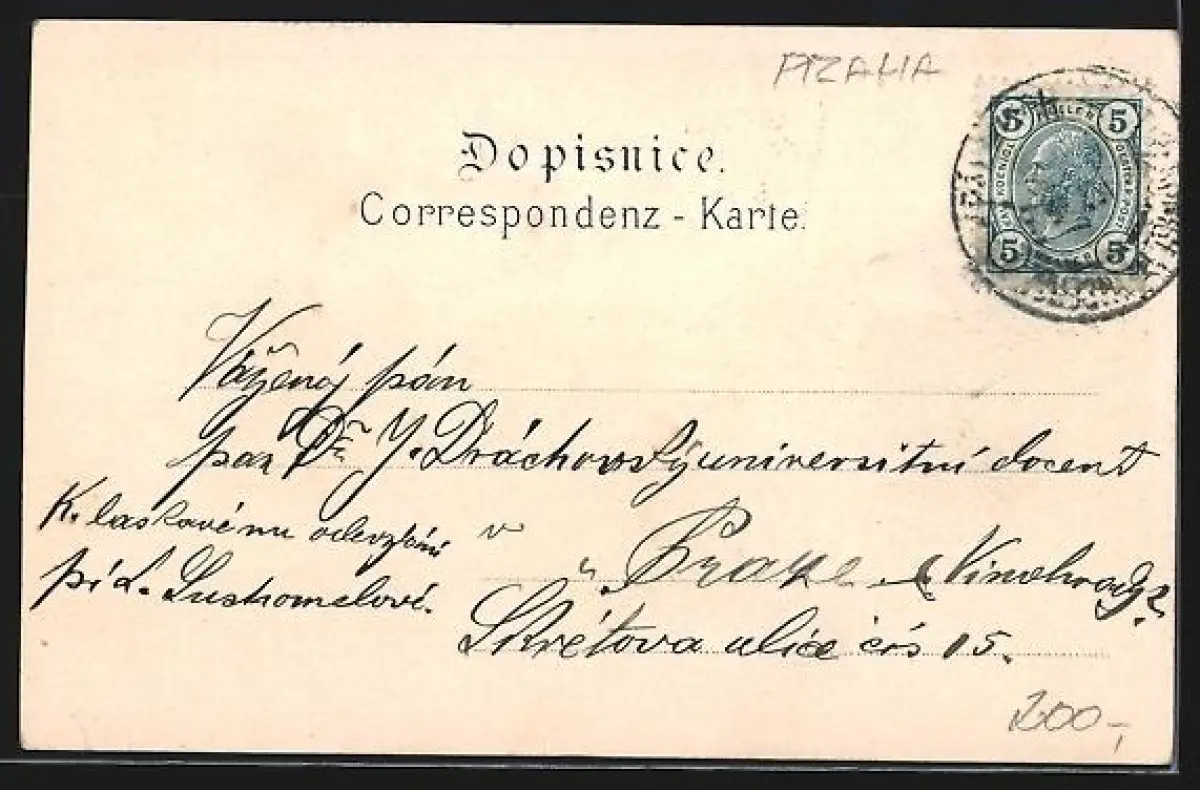 PRAHA
Dopisnice.
Correspondenz-Karte.
5 5
5 5
Vážený pán
pan Dr. J. Dráchovský universitní docent
v
Praze Vinohrady
Škrétova ulice čís 15.
K. laskavému odevzdání
pí L. Suchomelové.
200,-